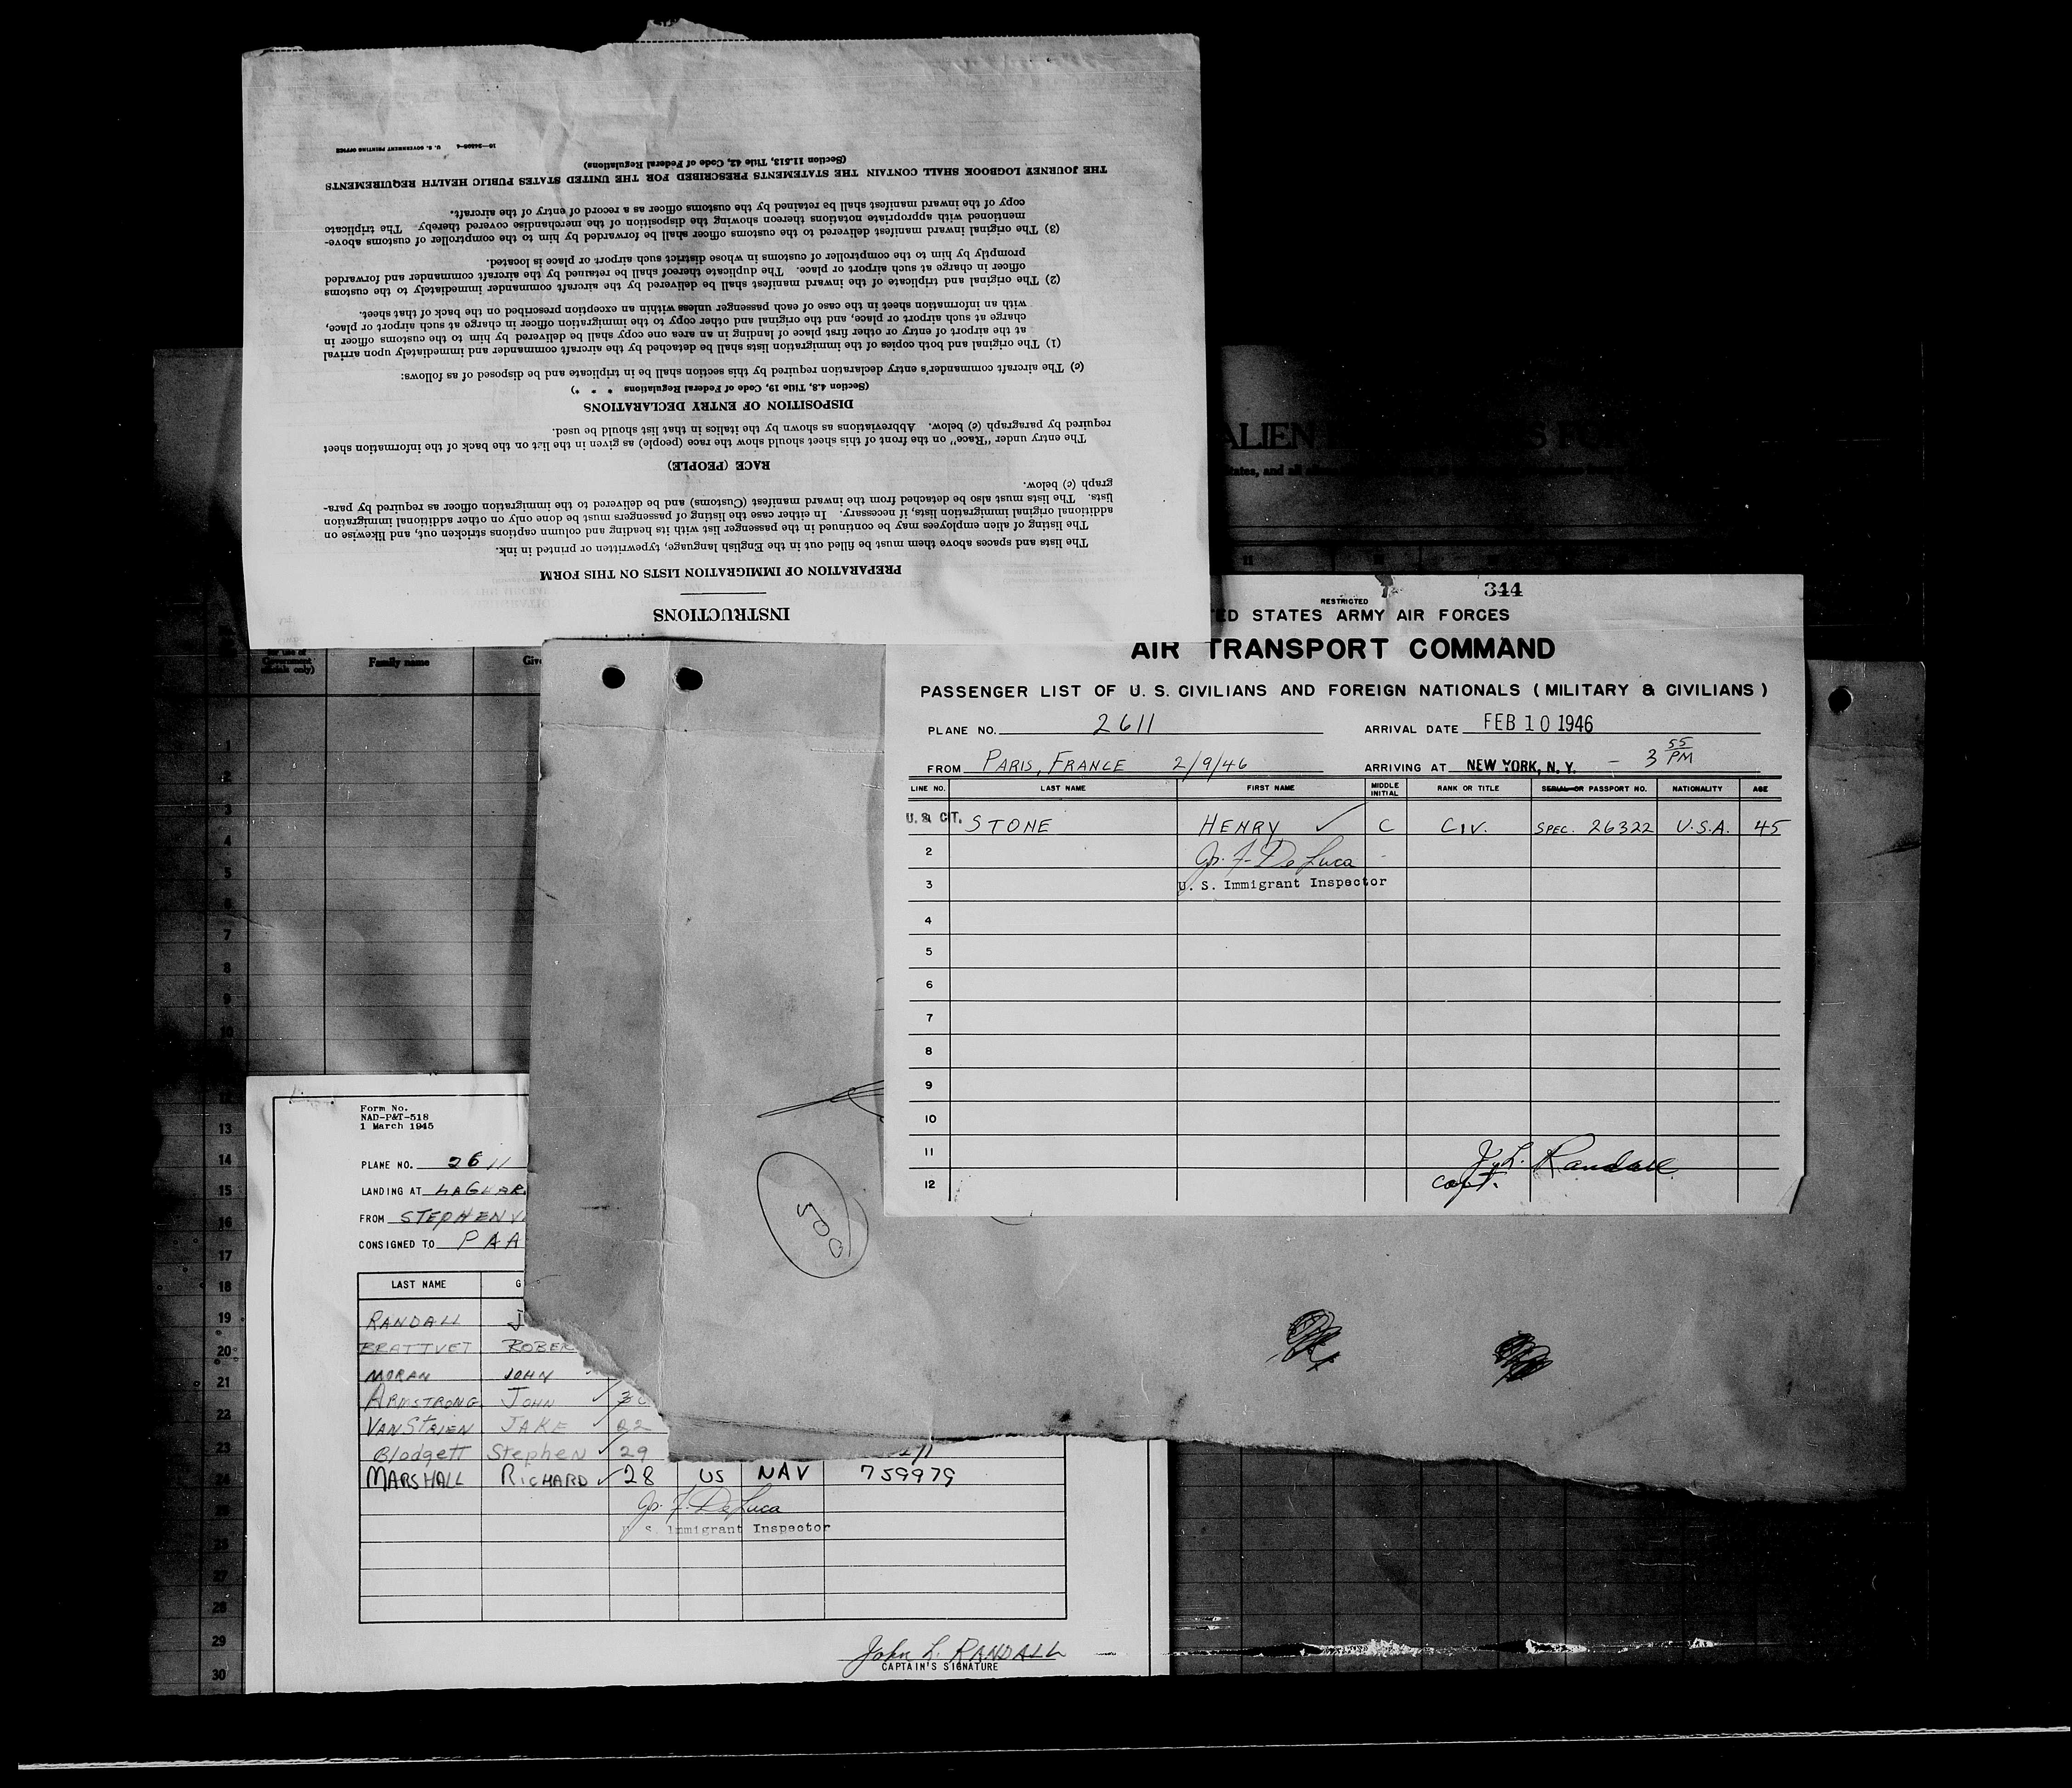 INSTRUCTIONS
PREPARATION OF IMMIGRATION LISTS ON THIS FORM
The lists and spaces above them must be filled out in the English language, typewritten or printed in ink.
The listing of alien employees may be continued in the passenger list with its heading and column captions stricken out, and likewise on
additional original immigration lists, if necessary. In either case the listing of passengers must be done only on other additional immigration
lists. The lists must also be detached from the inward manifest (Customs) and be delivered to the immigration officer as required by para-
graph (c) below.
RACE (PEOPLE)
The entry under "Race" on the front of this sheet should show the race (people) as given in the list on the back of the information sheet
required by paragraph (c) below. Abbreviations as shown by the italics in that list should be used.
DISPOSITION OF ENTRY DECLARATIONS
(Section 4.8, Title 19, Code of Federal Regulations * * *)
(c) The aircraft commander's entry declaration required by this section shall be in triplicate and be disposed of as follows:
(1) The original and both copies of the immigration lists shall be detached by the aircraft commander and immediately upon arrival
at the airport of entry or other first place of landing in an area one copy shall be delivered by him to the customs officer in
charge at such airport or place, and the original and other copy to the immigration officer in charge at such airport or place,
with an information sheet in the case of each passenger unless within an exception prescribed on the back of that sheet.
(2) The original and triplicate of the inward manifest shall be delivered by the aircraft commander immediately to the customs
officer in charge at such airport or place. The duplicate thereof shall be retained by the aircraft commander and forwarded
promptly by him to the comptroller of customs in whose district such airport or place is located.
(3) The original inward manifest delivered to the customs officer shall be forwarded by him to the comptroller of customs above-
mentioned with appropriate notations thereon showing the disposition of the merchandise covered thereby The triplicate
copy of the inward manifest shall be retained by the customs officer as a record of entry of the aircraft.
THE JOURNEY LOGBOOK SHALL CONTAIN THE STATEMENTS PRESCRIBED FOR THE UNITED STATES PUBLIC HEALTH REQUIREMENTS
(Section 11.513, Title 42, Code of Federal Regulations)
U. S. GOVERNMENT PRINTING OFFICE
ALIEN
Family name
344
RESTRICTED
ED STATES ARMY AIR FORCES
AIR TRANSPORT COMMAND
PASSENGER LIST OF U. S. CIVILIANS AND FOREIGN NATIONALS (MILITARY & CIVILIANS)
PLANE NO. 2611 ARRIVAL DATE FEB 10 1946
FROM PARIS, FRANCE 2/9/46 ARRIVING AT NEW YORK, N.Y. - 3 55 PM
LINE NO. LAST NAME FIRST NAME MIDDLE INITIAL RANK OR TITLE SERIAL OR PASSPORT NO. NATIONALITY AGE
U.S. CIT. STONE HENRY ✓ C CIV. SPEC. 26322 U.S.A. 45
2 Jo. F. De Luca
3 U. S. Immigrant Inspector
4
5
6
7
8
9
10
11 J. L. Randall
12 Capt.
Form No.
NAD-P&T-518
1 March 1945
PLANE NO. 2611
LANDING AT LAGUAR
FROM STEPHENV
CONSIGNED TO PAA
LAST NAME G
RANDALL J
BRATTVET ROBER
MORAN JOHN
ARMSTRONG JOHN ✓ 30
VANSTRIEN JAKE ✓ 22
Blodgett Stephen ✓ 29
MARSHALL RICHARD ✓ 28 US NAV 759979
Jo. F. De Luca
U. S. Immigrant Inspector
John L. RANDALL
CAPTAIN'S SIGNATURE
1
2
3
4
5
6
7
8
9
10
12
13
14
15
16
17
18
19
20
21
22
23
24
27
28
29
30